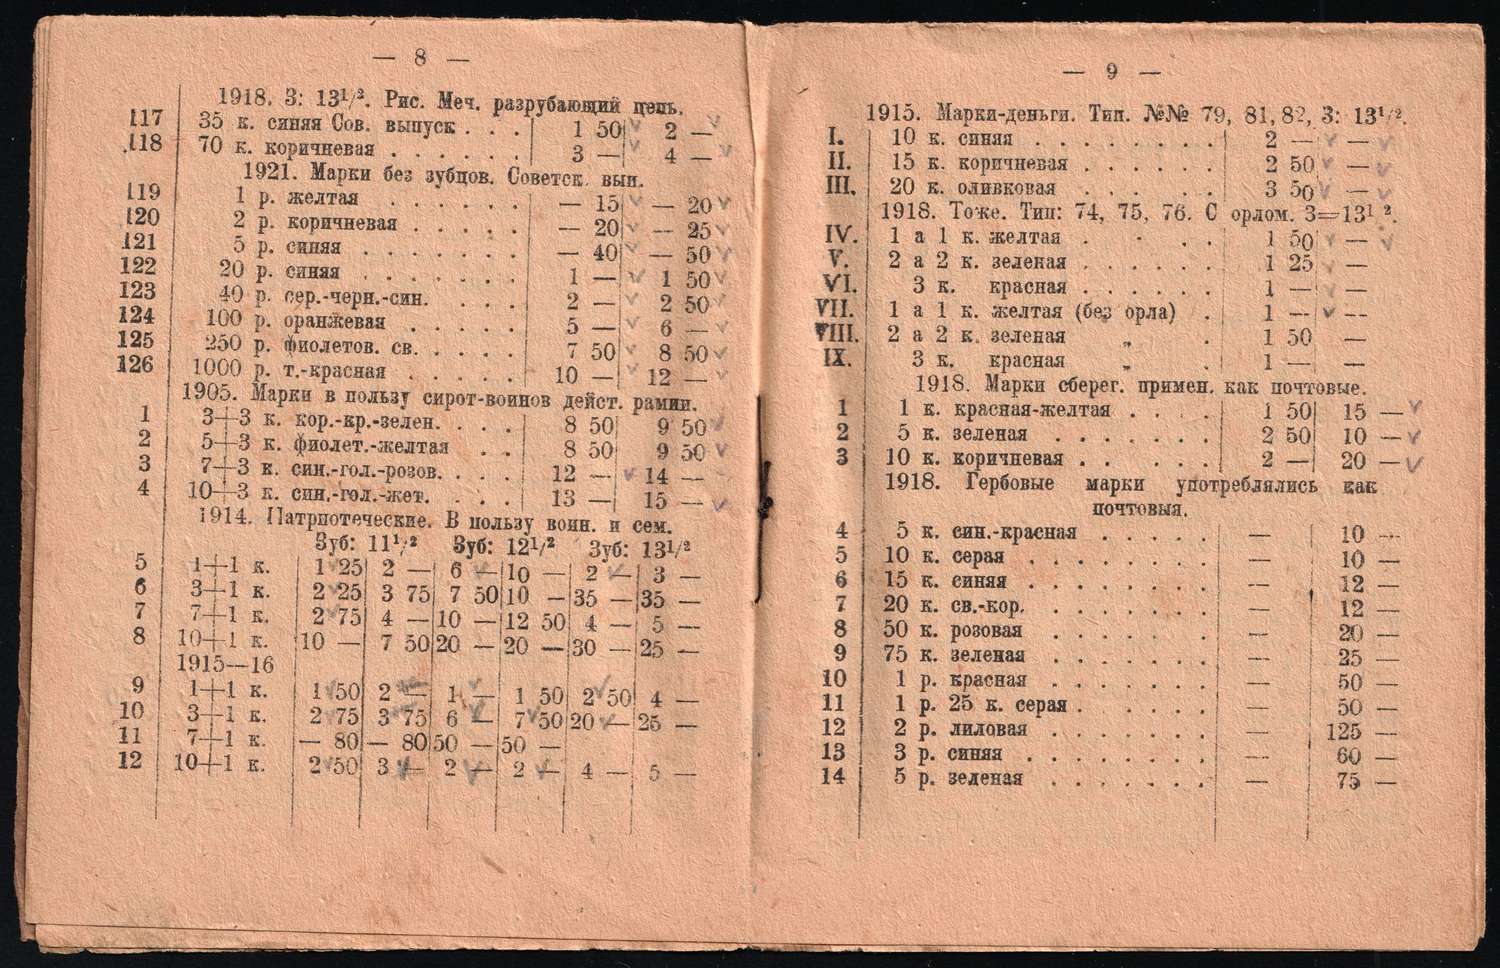 — 8 —
1918. З: 13¹/². Рис. Меч. разрубающий цепь.
117 35 к. синяя Сов. выпуск . . . 1 50 2 —
118 70 к. коричневая . . . . . . 3 — 4 —
1921. Марки без зубцов. Советск. вып.
119 1 р. желтая . . . . . . — 15 — 20
120 2 р. коричневая . . . . . — 20 — 25
121 5 р. синяя . . . . . . . — 40 — 50
122 20 р. синяя . . . . . . . 1 — 1 50
123 40 р. сер.-черн.-син. . . . 2 — 2 50
124 100 р. оранжевая . . . . . 5 — 6 —
125 250 р. фиолетов. св. . . . . 7 50 8 50
126 1000 р. т.-красная . . . . . 10 — 12 —
1905. Марки в пользу сирот-воинов дейст. рамии.
1 3+3 к. кор.-кр.-зелен. . . . 8 50 9 50
2 5+3 к. фиолет.-желтая . . 8 50 9 50
3 7+3 к. син.-гол.-розов. . . . 12 — 14 —
4 10+3 к. син.-гол.-жет. . . . 13 — 15 —
1914. Патриотеческие. В пользу воин. и сем.
Зуб: 11¹/² Зуб: 12¹/² Зуб: 13¹/²
5 1+1 к. 1 25 2 — 6 — 10 — 2 — 3 —
6 3+1 к. 2 25 3 75 7 50 10 — 35 — 35 —
7 7+1 к. 2 75 4 — 10 — 12 50 4 — 5 —
8 10+1 к. 10 — 7 50 20 — 20 — 30 — 25 —
1915—16
9 1+1 к. 1 50 2 — 1 — 1 50 2 50 4 —
10 3+1 к. 2 75 3 75 6 — 7 50 20 — 25 —
11 7+1 к. — 80 — 80 50 — 50 —
12 10+1 к. 2 50 3 — 2 — 2 — 4 — 5 —
— 9 —
1915. Марки-деньги. Тип. №№ 79, 81, 82, З: 13¹/².
I. 10 к. синяя . . . . . . . . 2 — —
II. 15 к. коричневая . . . . . . 2 50 —
III. 20 к. оливковая . . . . . 3 50 —
1918. Тоже. Тип: 74, 75, 76. С орлом. З=13¹ ².
IV. 1 а 1 к. желтая . . . . 1 50 —
V. 2 а 2 к. зеленая . . . . . . 1 25 —
VI. 3 к. красная . . . . . . 1 — —
VII. 1 а 1 к. желтая (без орла) . 1 — —
VIII. 2 а 2 к. зеленая „ . 1 50 —
IX. 3 к. красная „ . 1 — —
1918. Марки сберег. примен. как почтовые.
1 1 к. красная-желтая . . . . 1 50 15 —
2 5 к. зеленая . . . . . . . 2 50 10 —
3 10 к. коричневая . . . . . 2 — 20 —
1918. Гербовые марки употреблялись как
почтовыя.
4 5 к. син.-красная . . . . . — 10 —
5 10 к. серая . . . . . . . . — 10 —
6 15 к. синяя . . . . . . . . — 12 —
7 20 к. св.-кор. . . . . . . . — 12 —
8 50 к. розовая . . . . . . . — 20 —
9 75 к. зеленая . . . . . . . — 25 —
10 1 р. красная . . . . . . . — 50 —
11 1 р. 25 к. серая . . . . . . — 50 —
12 2 р. лиловая . . . . . . . — 125 —
13 3 р. синяя . . . . . . . . — 60 —
14 5 р. зеленая . . . . . . . — 75 —